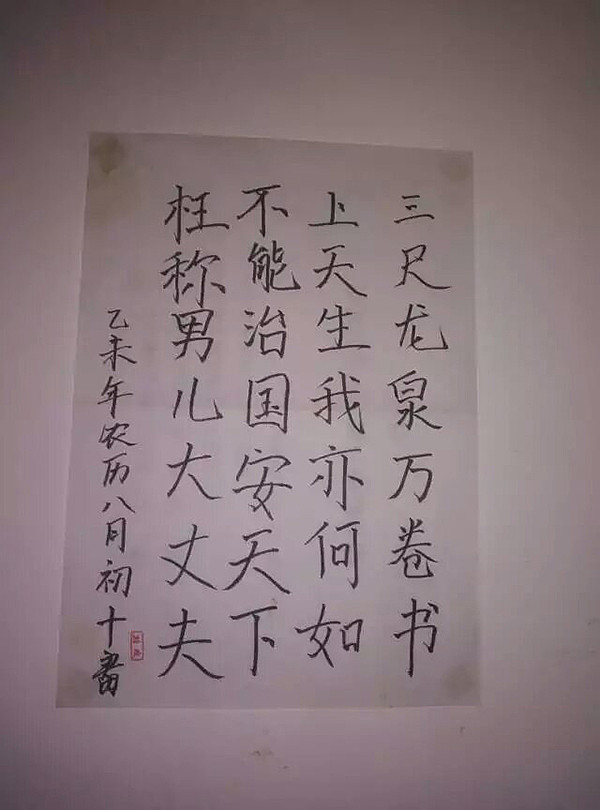 三尺龙泉万卷书
上天生我亦何如
不能治国安天下
枉称男儿大丈夫
乙未年农历八月初十书